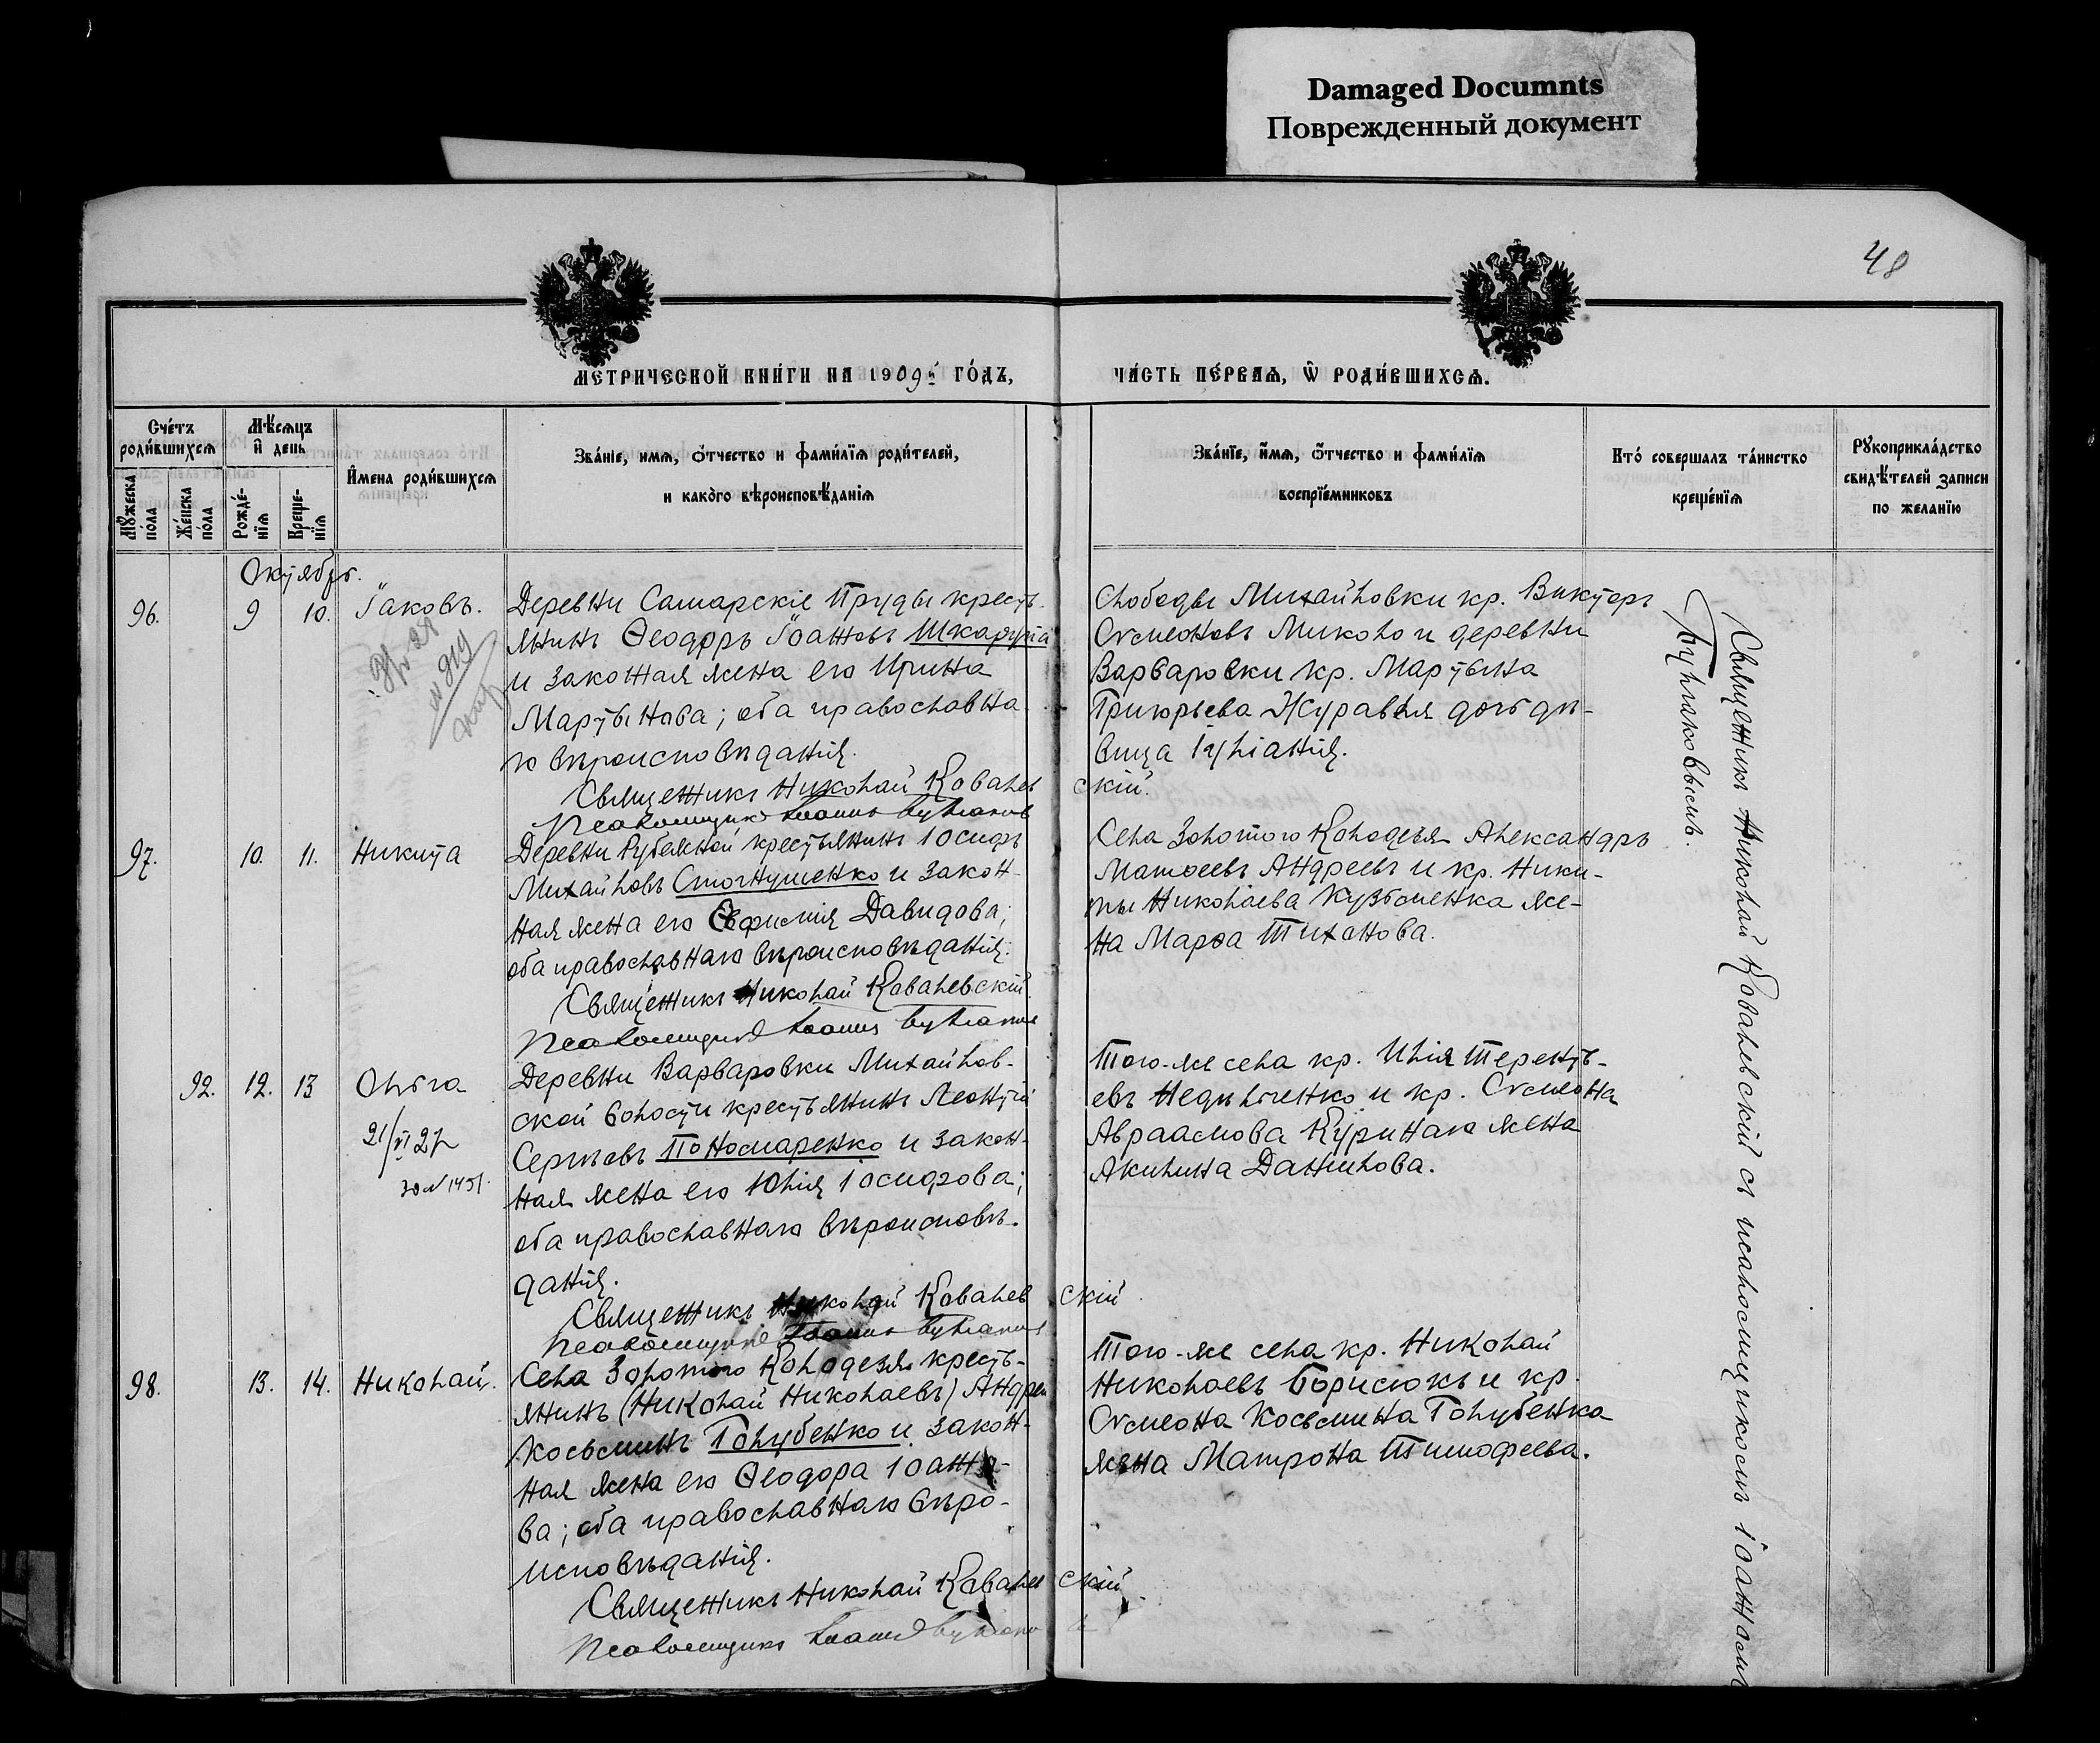 Damaged Documnts
Поврежденный документ
48
МЕТРИЧЕСКОЙ КНИГИ НА 1909й ГОДЪ,
ЧАСТЬ ПЕРВАЯ, Ѡ РОДИВШИХСЯ.
Счетъ родившихся
Мужеска пола
Женска пола
Мѣсяцъ и день
Рожде-
нія
Креще-
нія
Имена родившихся
Званіе, имя, отчество и фамилія родителей,
и какого вѣроисповѣданія
Званіе, имя, отчество и фамилія
воспріемниковъ
Кто совершалъ таинство
крещенія
Рукоприкладство
свидѣтелей записи
по желанію
Октябрь.
96. 9 10. Іаковъ.
Деревни Самарскіе Пруды кресть-
янинъ Ѳеодоръ Іоанновъ
и законная жена его Ирина
Мартынова; оба православна-
го вѣроисповѣданія.
Священникъ Николай Ковалевскій.
Псаломщикъ Іоаннъ
Слободы Михайловки кр. Викторъ
Сѵмеоновъ Миколо и деревни
Варваровки кр. Мартына
Григорьева Журавля дочь дѣ-
вица Іуліанія.
97. 10. 11. Никита
Деревни Рубежной крестьянинъ Іосифъ
Михайловъ Стогнушенко и закон-
ная жена его Евфимія Давидова;
оба православнаго вѣроисповѣданія.
Священникъ Николай Ковалевскій.
Псаломщикъ Іоаннъ
Села Золотого Колодезя Александръ
Матѳеевъ Андреевъ и кр. Ники-
ты Николаева Кузьменка же-
на Марѳа Тихонова.
92. 12. 13 Ольга
21/VI 27
Деревни Варваровки Михайлов-
ской волости крестьянинъ Леонтій
Сергѣевъ Пономаренко и закон-
ная жена его Юлія Іосифова;
оба православнаго вѣроисповѣ-
данія.
Священникъ Николай Ковалевскій
Псаломщикъ Іоаннъ
Того-же села кр. Илія Терентъ-
евъ Недѣльченко и кр. Сѵмеона
Авраамова Куринаго жена
Акилина Даниилова.
98. 13. 14. Николай.
Села Золотого Колодезя кресть-
янинъ (Николай Николаевъ) Андрей
Косьминъ Голубенко и закон-
ная жена его Ѳеодора Іоанно-
ва; оба православнаго вѣро-
исповѣданія.
Священникъ Николай Ковалевскій
Псаломщикъ Іоаннъ
Того-же села кр. Николай
Николаевъ Борисюкъ и кр.
Сѵмеона Косьмина Голубенка
жена Матрона Тимофеева.
Священникъ Николай Ковалевскій съ псаломщикомъ Іоанномъ